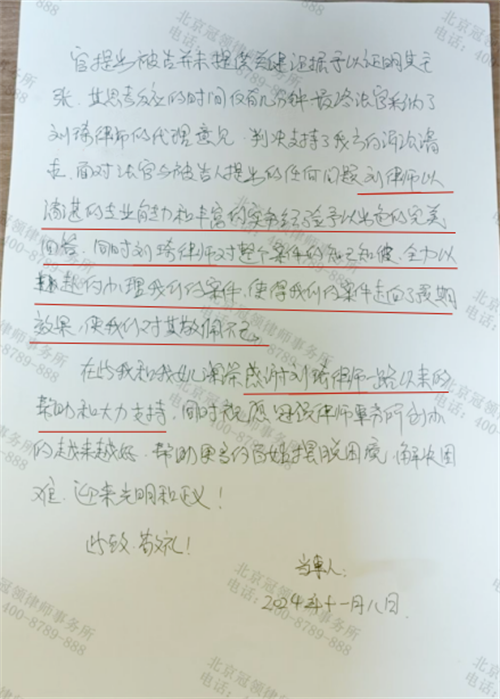 官提出被告并未提供关键证据予以证明其主
张，其思考分应的时间仅有几分钟，最终法官采纳了
刘琦律师的代理意见，判决支持了我方的诉讼请
求。面对法官与被告人提出的任何问题刘律师以
精湛的专业能力和丰富的实务经验予以出色的完美
回答，同时刘琦律师对整个案件的知己知彼、全力以
赴的办理我们的案件，使得我们的案件走向了预期
效果，使我们对其敬佩不已。
在此我和我女儿非常感谢刘琦律师一路以来的
帮助和大力支持，同时祝愿冠领律师事务所创办
的越来越好，帮助更多的百姓摆脱困境，解决困
难，迎来光明和正义！
此致，敬礼！
当事人：
2024年十一月八日
北京冠领律师事务所
电话：400-8789-888